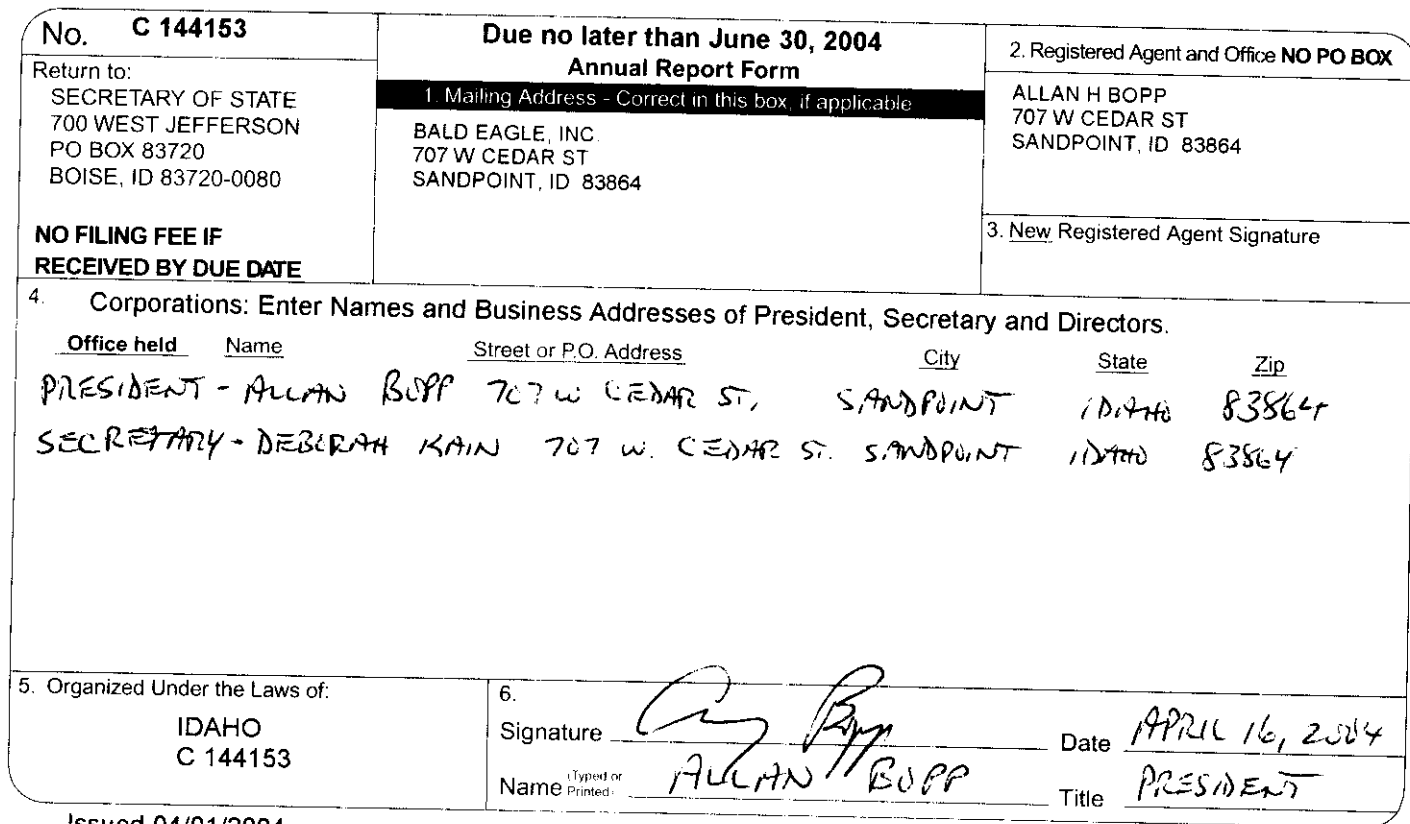 No. C 144153
Return to:
SECRETARY OF STATE
700 WEST JEFFERSON
PO BOX 83720
BOISE, ID 83720-0080
NO FILING FEE IF
RECEIVED BY DUE DATE
Due no later than June 30, 2004
Annual Report Form
1. Mailing Address - Correct in this box, if applicable
BALD EAGLE, INC.
707 W CEDAR ST
SANDPOINT, ID 83864
2. Registered Agent and Office NO PO BOX
ALLAN H BOPP
707 W CEDAR ST
SANDPOINT, ID 83864
3. New Registered Agent Signature
4. Corporations: Enter Names and Business Addresses of President, Secretary and Directors.
Office held Name Street or P.O. Address City State Zip
PRESIDENT - ALLAN BOPP 707 W CEDAR ST, SANDPOINT IDAHO 83864
SECRETARY - DEBORAH KAIN 707 W. CEDAR ST. SANDPOINT IDAHO 83864
5. Organized Under the Laws of:
IDAHO
C 144153
6.
Signature Bopp Date APRIL 16, 2004
Name (Typed or Printed) ALLAN BOPP Title PRESIDENT
Issued 04/01/2004